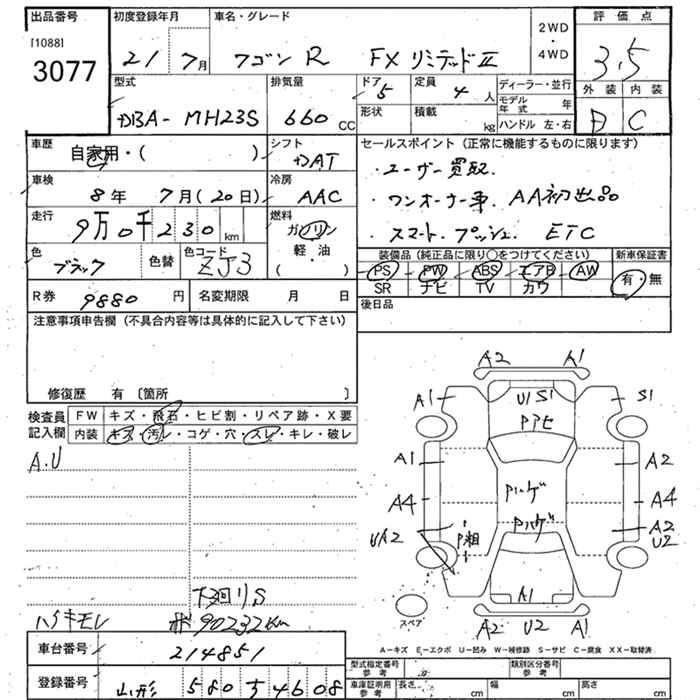 出品番号 初度登録年月 車名・グレード 2WD・4WD 評価点
[1088]
3077 21 7月 ワゴンR FXリミテッドⅡ 3.5
外装 内装
型式 排気量 ドア 定員 ディーラー・並行
5 4人 モデル年式 年
DBA-MH23S 660CC 形状 積載 kg ハンドル 左・右 C
車歴 シフト セールスポイント(正常に機能するものに限ります)
自家用・( ) DAT ・ユーザー買取.
車検 冷房
8年 7月(20日) AAC ・ワンオーナー車、AA初出品
走行 燃料
9万0千230km ガソリン ・スマートプッシュ ETC
軽・油
( )
色 色替 色コード 装備品(純正品に限り○をつけてください) 新車保証書
ブラック ZJ3 PS PW ABS エアB AW 有・無
SR ナビ TV カワ
R券 9880円 名変期限 月 日 後日品
注意事項申告欄(不具合内容等は具体的に記入して下さい)
修復歴 有〔箇所 〕
検査員記入欄 FW キズ・飛石・ヒビ割・リペア跡・X要
内装 キズ・汚レ・コゲ・穴・スレ・キレ・破レ
A.U
下廻りS
ハイキモレ 90232km
A2 A1
A1 U1 S1 S1
Pアセ
A1 A2
A4 Pハゲ A4
UA2 Pハゲ A2
U2
A1
スペア A2 U2 A1
A-キズ E-エクボ U-凹み W-補修跡 S-サビ C-腐食 XX-取替済
車台番号 214851
型式指定番号 参考 類別区分番号 参考
登録番号 山形 580 5460 8
車庫証明用 参考 長さ cm 幅 cm 高さ cm